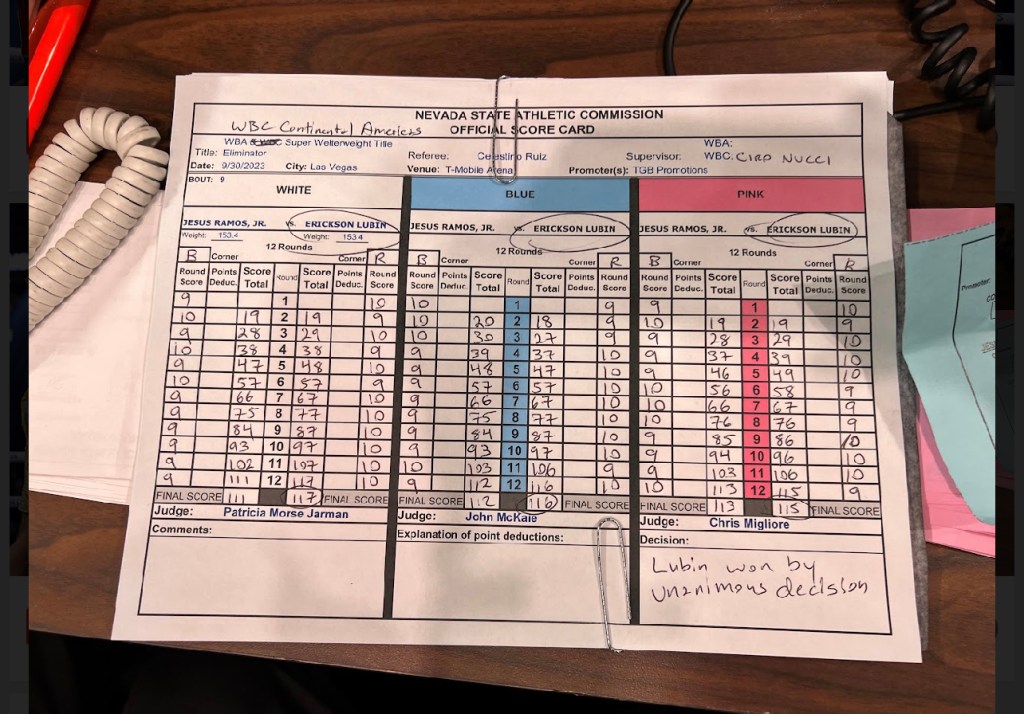 NEVADA STATE ATHLETIC COMMISSION
WBC Continental Americas OFFICIAL SCORE CARD
WBA & WBC Super Welterweight Title WBA:
Title: Eliminator Referee: Celestino Ruiz Supervisor: WBC: CIRO NUCCI
Date: 9/30/2023 City: Las Vegas Venue: T-Mobile Arena Promoter(s): TGB Promotions
BOUT: 9
WHITE BLUE PINK
JESUS RAMOS, JR. vs. ERICKSON LUBIN JESUS RAMOS, JR. vs. ERICKSON LUBIN JESUS RAMOS, JR. vs. ERICKSON LUBIN
Weight: 153.4 Weight: 153.4
12 Rounds 12 Rounds 12 Rounds
B Corner Corner R B Corner Corner R B Corner Corner R
Round Score Points Deduc. Score Total Round Score Total Points Deduc. Round Score Round Score Points Deduc. Score Total Round Score Total Points Deduc. Round Score Round Score Points Deduc. Score Total Round Score Total Points Deduc. Round Score
9 1 10 10 1 9 9 1 10
10 19 2 19 9 10 20 2 18 9 10 19 2 19 9
9 28 3 29 10 10 30 3 27 9 9 28 3 29 10
10 38 4 38 9 9 39 4 37 10 9 37 4 39 10
9 47 5 48 10 9 48 5 47 10 9 46 5 49 10
10 57 6 57 9 9 57 6 57 10 10 56 6 58 9
9 66 7 67 10 9 66 7 67 10 10 66 7 67 9
9 75 8 77 10 9 75 8 77 10 10 76 8 76 9
9 84 9 87 10 9 84 9 87 10 9 85 9 86 10
9 93 10 97 10 9 93 10 97 10 9 94 10 96 10
9 102 11 107 10 10 103 11 106 9 9 103 11 106 10
9 111 12 117 10 9 112 12 116 10 10 113 12 115 9
FINAL SCORE 111 117 FINAL SCORE FINAL SCORE 112 116 FINAL SCORE FINAL SCORE 113 115 FINAL SCORE
Judge: Patricia Morse Jarman Judge: John McKaie Judge: Chris Migliore
Comments: Explanation of point deductions: Decision:
Lubin won by
unanimous decision